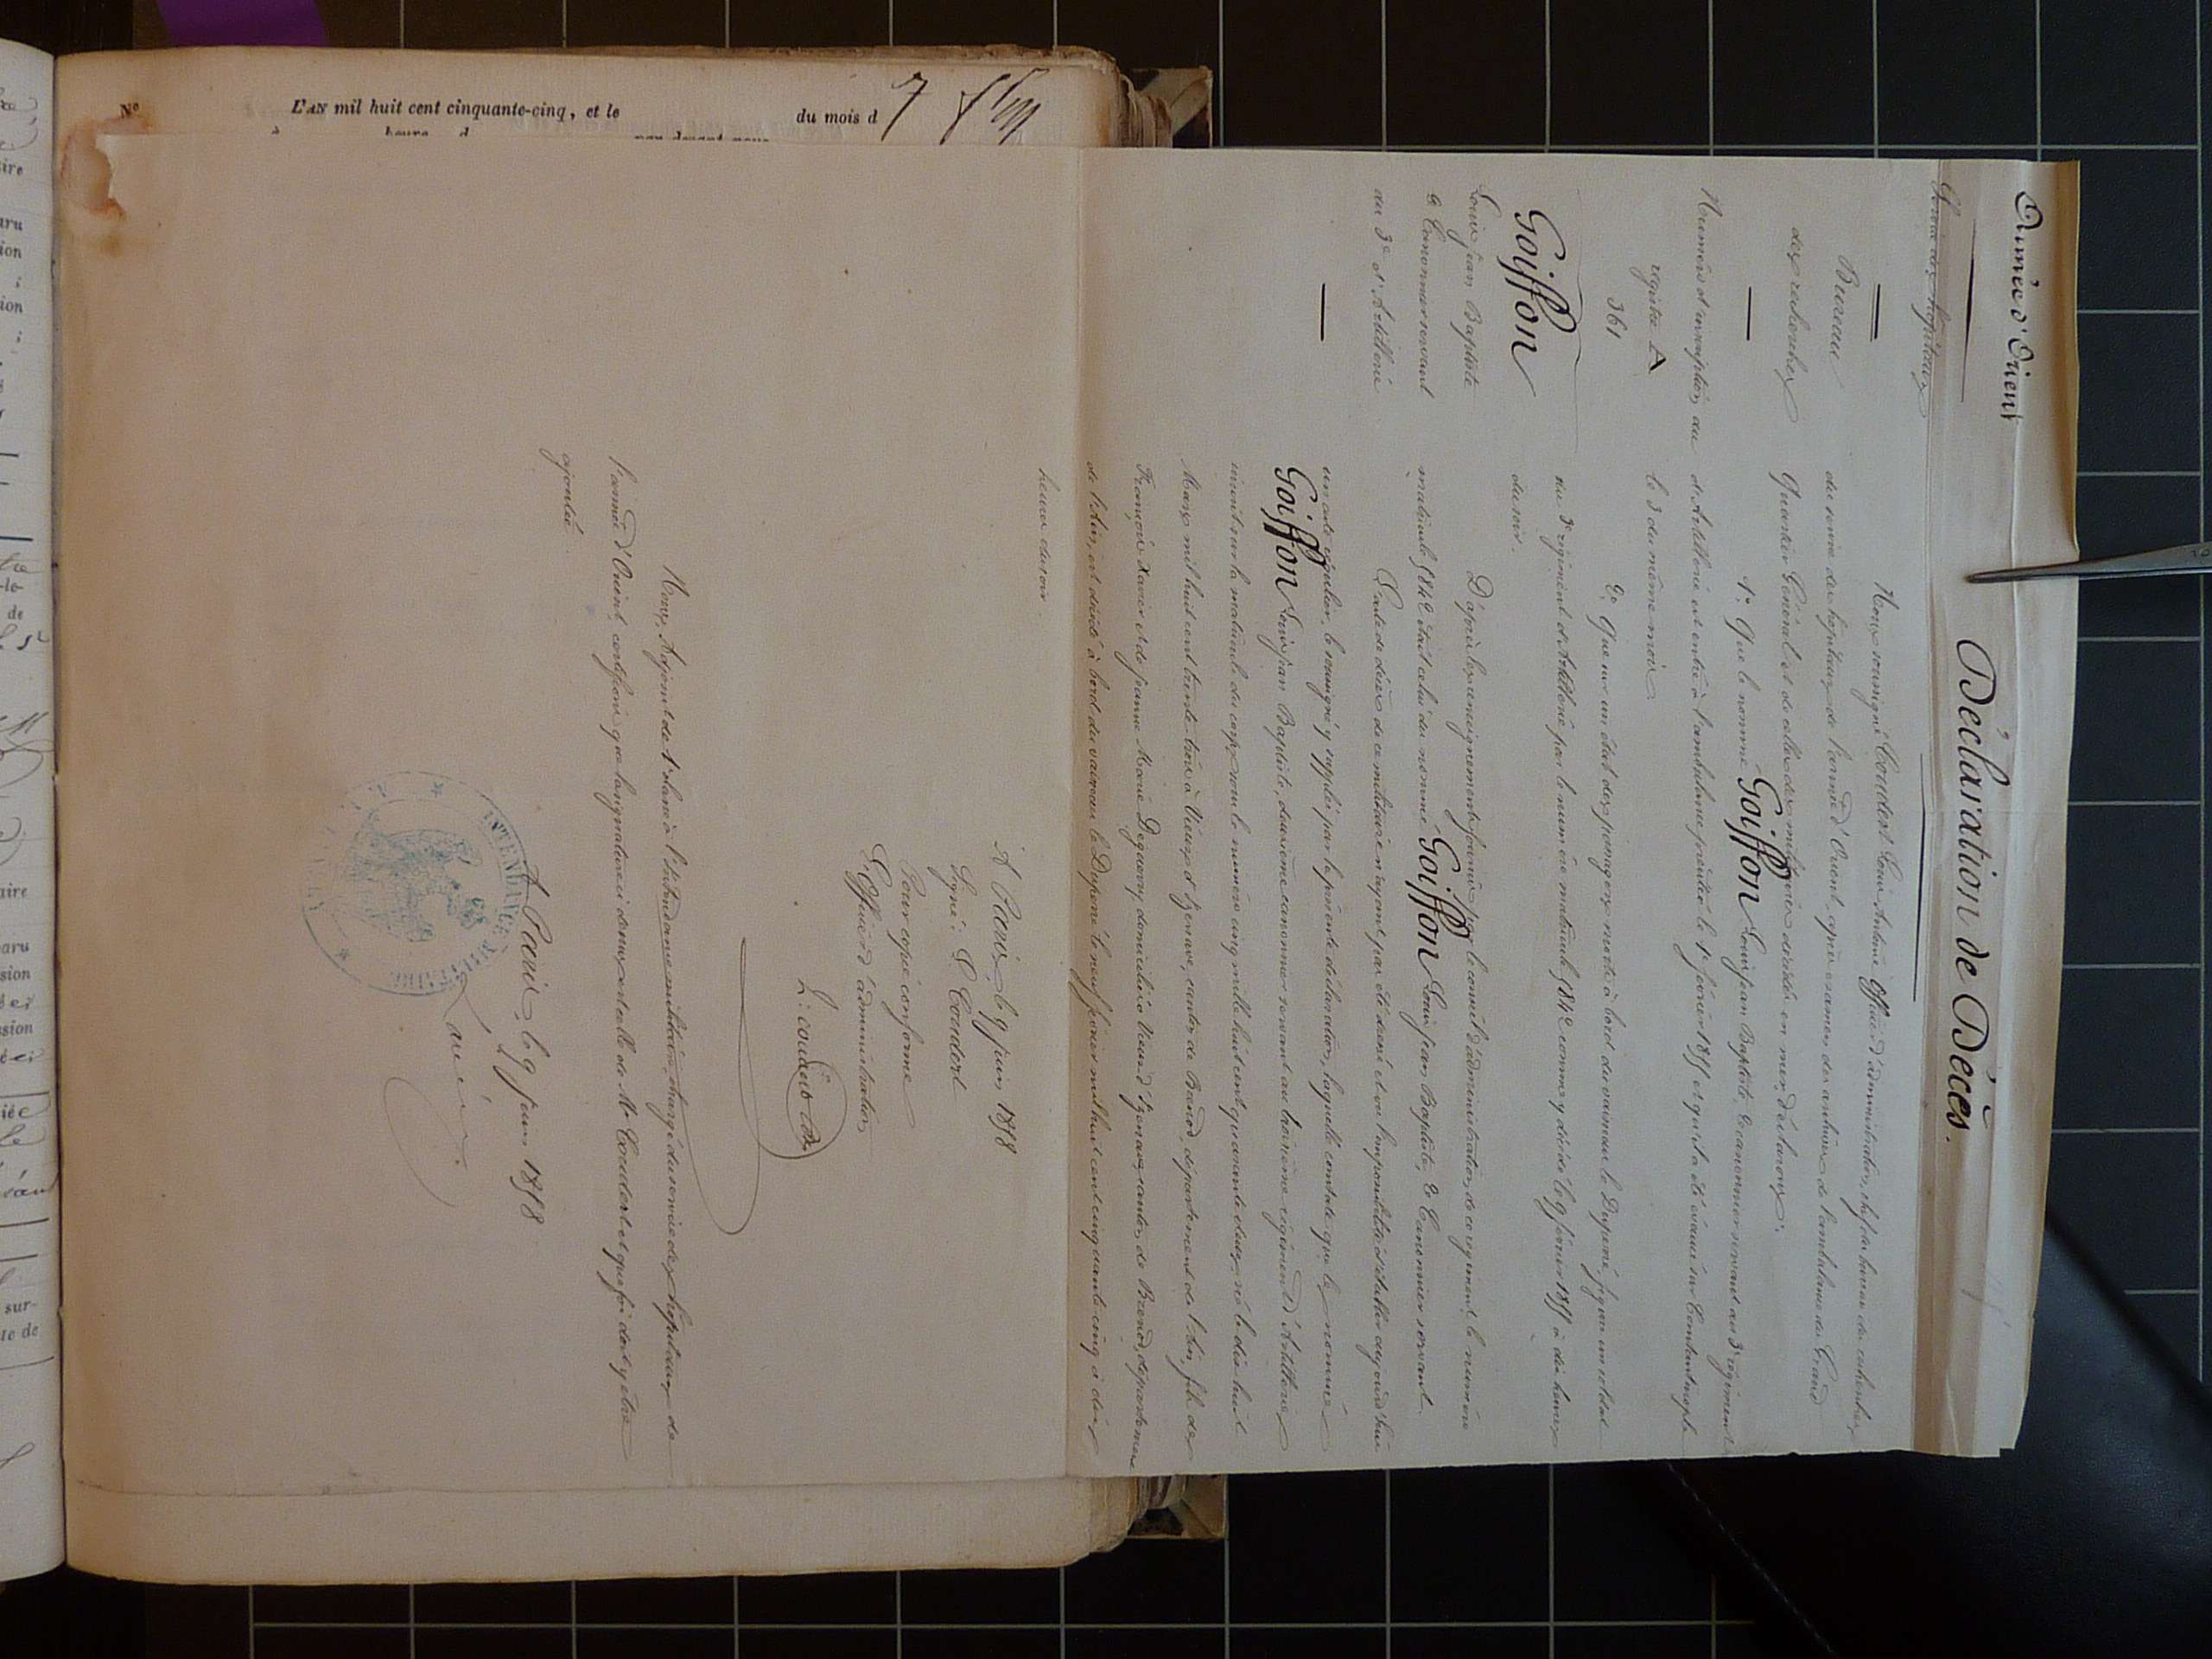 N° L'AN mil huit cent cinquante-cinq, et le du mois d
7
Armée d'Orient
Service des hôpitaux
Bureau
des recherches
Numéro d'inscription au
registre A
361
Goiffon
Louis Jean Baptiste
2e Canonnier servant
au 3e d'Artillerie
Déclaration de Décès.
Nous soussigné Coudert Louis Antoine Officier d'administration, chef du bureau des recherches
du service des hôpitaux de l'armée d'Orient, après examen des archives de l'ambulance du Grand
Quartier Général et de celles des militaires décédés en mer, déclarons:
1° Que le nommé Goiffon Louis Jean Baptiste, 2e canonnier servant au 3e régiment
d'Artillerie est entré à l'ambulance précitée le 1er février 1855 et qu'il a été évacué sur Constantinople
le 3 du même mois
2° Que sur un état des passagers morts à bord du vaisseau le Duperré, figure un soldat
du 3e régiment d'Artillerie par le numéro matricule 5842 comme y décédé le 9 février 1855 à dix heures
du soir.
D'après les renseignements fournis par le conseil d'administration de ce régiment, le numéro
matricule 5842 était celui du nommé Goiffon Louis Jean Baptiste, 2e Canonnier servant
L'acte de décès de ce militaire n'ayant pas été dressé et vu l'impossibilité d'établir aujourd'hui
un acte régulier, le soussigné y supplée par la présente déclaration, laquelle constate que le nommé
Goiffon Louis Jean Baptiste, deuxième canonnier servant au troisième régiment d'Artillerie
inscrit sur la matricule du corps sous le numéro cinq mille huit cent quarante deux, né le dix huit
Mars mil huit cent trente trois à Vieux d'Izenave, canton de Brenod, département de l'Ain, fils de
François Xavier et de Jeanne Marie Deguerry, domiciliés Vieux d'Izenave, canton de Brenod, département
de l'Ain, est décédé à bord du vaisseau le Duperré le neuf février mil huit cent cinquante cinq à dix
heures du soir.
A Paris, le 9 juin 1858
Signé: L. Coudert
Pour copie conforme
L'Officier d'administration
L. Coudert
Nous, Adjoint de 1re classe à l'Intendance militaire, chargé du service des hôpitaux de
l'armée d'Orient, certifions que la signature ci dessus est celle de Mr Coudert et que foi doit y être
ajoutée.
A Paris, le 9 juin 1858
INTENDANCE MILITAIRE